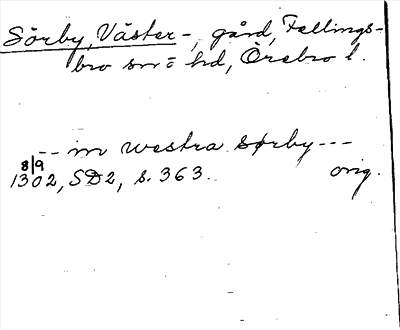 Sörby, Väster-, gård, Fellings-
bro sn o hd, Örebro l.
-- in westra sørby ---
8/9
1302, SD2, s. 363. orig.